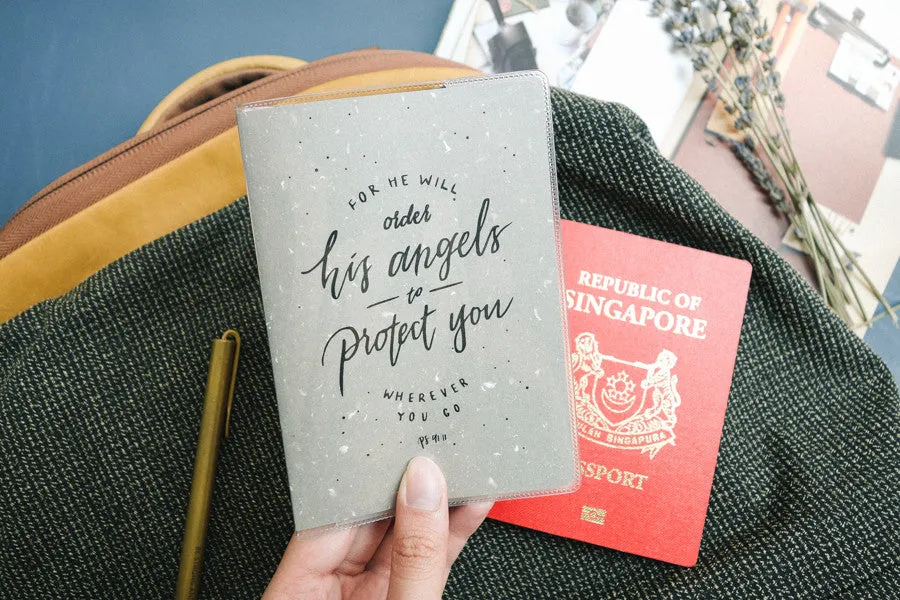 FOR HE WILL
order
his angels
to
protect you
WHEREVER
YOU GO
PS 91:11
REPUBLIC OF
SINGAPORE
SINGAPURA